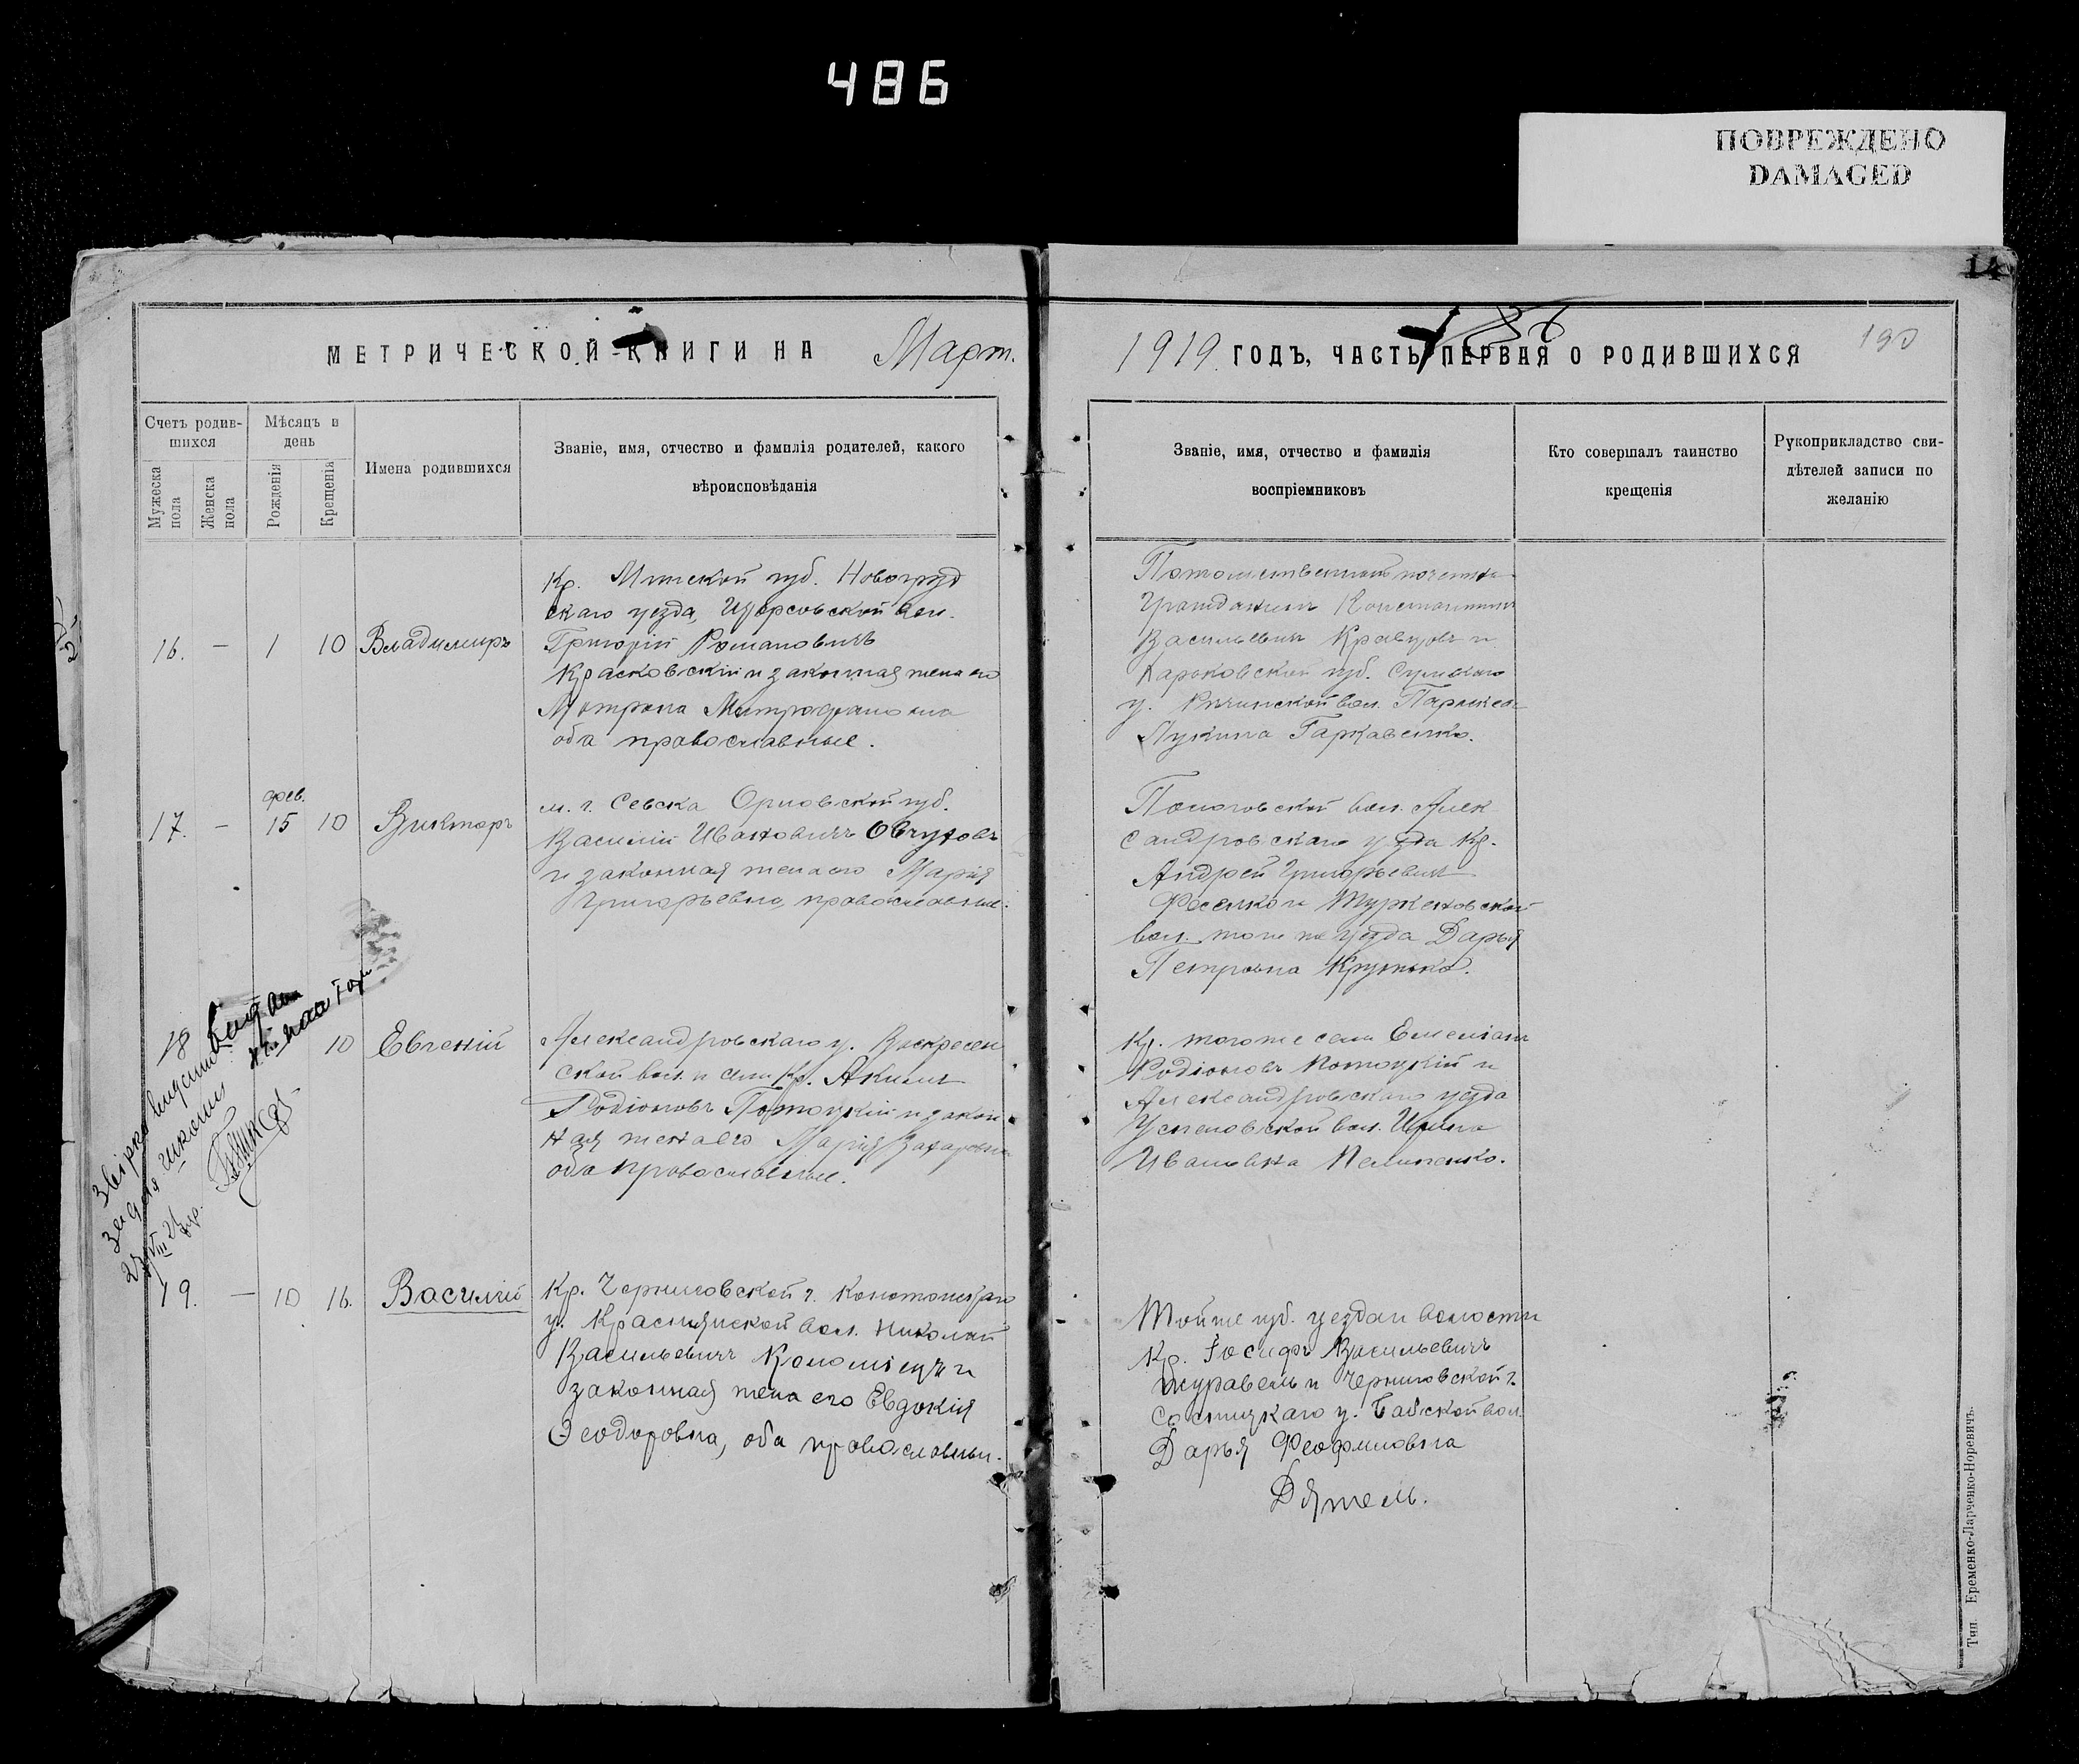 486
ПОВРЕЖДЕНО
DAMAGED
14
МЕТРИЧЕСКОЙ КНИГИ НА Март.
1919 ГОДЪ, ЧАСТЬ ПЕРВАЯ О РОДИВШИХСЯ
190
Счетъ родив-
шихся
Мужеска пола
Женска пола
Мѣсяцъ и
день
Рожденія
Крещенія
Имена родившихся
Званіе, имя, отчество и фамилія родителей, какого
вѣроисповѣданія
Званіе, имя, отчество и фамилія
воспріемниковъ
Кто совершалъ таинство
крещенія
Рукоприкладство сви-
дѣтелей записи по
желанію
16. — 1 10 Владимиръ
Кр. Минской губ. Новогруд
скаго уезда, Щорсовской вол.
Григорій Романовичъ
Красковскій и законная жена его
Матрона Митрофановна
оба православные.
Гражданинъ Константинъ
Васильевичъ Кравцовъ и
Харьковской губ. Сумскаго
у. вол.
Лукина Гаркавенко.
17. — фев. 15 10 Викторъ
м. г. Севска Орловской губ.
Василій Ивановичъ Овчуховъ
и законная жена его Марія
Григорьевна, православные.
Пологовской вол. Алек
сандровскаго уезда Кр.
Андрей Григорьевичъ
Фесенко и Туркеновской
вол. того же уезда Дарья
Петровна
18
10 Евгеній
Александровскаго у. Воскресен
ской вол. и села Кр. Акимъ
Родіоновъ Потоцкій и закон
ная жена его Марія Захаровна
оба православные.
Кр. того же села Емеліанъ
Родіоновъ Потоцкій и
Александровскаго уезда
Успеновской вол. Ирина
Ивановна
19. — 10 16. Василій
Кр. Черниговской г. Конотопскаго
у. Краснянской вол. Николай
Васильевичъ Коломіецъ и
законная жена его Евдокія
Ѳеодоровна, оба православны.
Той же губ. уезда и волости
Кр. Іосифъ Васильевичъ
Журавель и Черниговской г.
Сосницкаго у. Бабской вол.
Дарья
Дятель.
Тип. Еременко-Ларченко-Норевичъ.